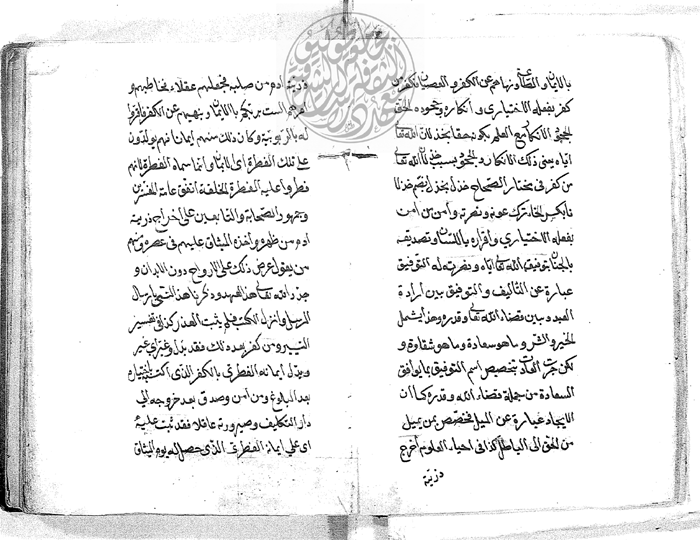 بالايمان والطاعة ونهاهم عن الكفر والعصيان فكفر من
كفر بفعله الاختياري وانكاره وجحوده الحق
الانكار مع العلم بكونه حقا بخذلان الله تعالى
اياه يعني ذلك الانكار والجحود بسبب خذلان الله تعالى
من كفر في مختار الصحاح خذل يخذل بضم خذلا
نا بكسر الخاء ترك عونه ونصرته وآمن من آمن
بفعله الاختياري واقراره باللسان وتصديقه
بالجنان بتوفيق الله تعالى اياه ونصرته له التوفيق
عبارة عن التأليف والتوفيق بين ارادة
العبد وبين قضاء الله تعالى وقدره وهذا يشمل
الخير والشر وما هو سعادة وما هو شقاوة و
لكن جرت العادة بتخصيص اسم التوفيق بما يوافق
السعادة من جملة قضاء الله وقدره كما ان
الالحاد عبارة عن الميل فخصص بمن يميل
من الحق الى الباطل كذا في احياء العلوم اخرج
ذرية
ذرية ادم من صلبه فجعلهم عقلاء فخاطبهم و
امرهم الست بربكم بالايمان ونهيهم عن الكفر فاقروا
له بالربوبية وكان ذلك منهم ايمانا فهم يولدون
على تلك الفطرة اي الايمان وانما سماه الفطرة لانهم
فطروا عليه الفطرة الخلقة اتفق عامة المفسرين
وجمهور الصحابة والتابعين على اخراج ذرية
ادم من ظهره واخذه الميثاق عليهم في عصره ومنهم
من يقول عرض ذلك على الارواح دون الابدان و
جدد الله تعالى هذا العهد وذكر هذا المنسي بارسال
الرسل وانزال الكتب فلم يثبت العذر كذا في تفسير
التيسير ومن كفر بعد ذلك فقد بدل وغير اي غير
وبدل ايمانه الفطري بالكفر الذي اكتسبه باختياره
بعد البلوغ ومن آمن وصدق بعد خروجه الى
دار التكليف وصيرورته عاقلا فقد ثبت عليه
اي على ايمانه الفطري الذي حصل له يوم الميثاق